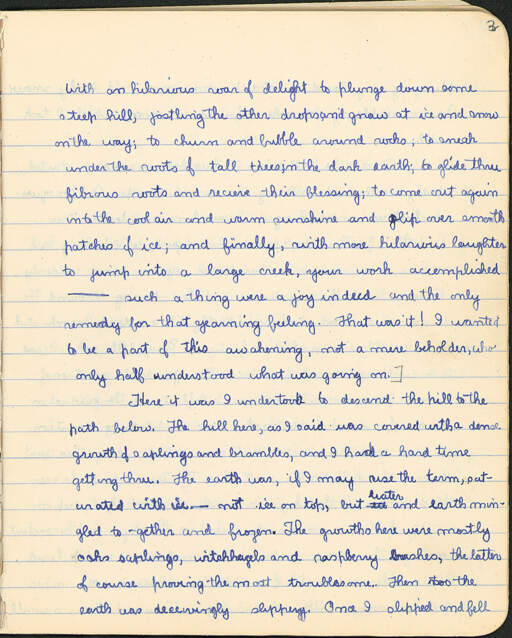 3
with an hilarious roar of delight to plunge down some
steep hill, jostling the other drops and gnaw at ice and snow
on the way; to churn and bubble around rocks; to sneak
under the roots of tall trees, in the dark earth; to glide thru
fibrous roots and recieve their blessing; to come out again
into the cool air and warm sunshine and slip over smooth
patches of ice; and finally, with more hilarius laughter
to jump into a large creek, your work accomplished
— such a thing were a joy indeed and the only
remedy for that yearning feeling. That was it! I wanted
to be a part of this awakening, not a mere beholder, who
only half understood what was going on.]
Here it was I undertook to descend the hill to the
path below. The hill here, as I said was covered with a dense
growth of saplings and brambles, and I had a hard time
getting thru. The earth was, if I may use the term, sat-
urated with ice — not ice on top, but water and earth min-
gled to-gether and frozen. The growths here were mostly
oaks saplings, witchhazels and raspberry bushes, the latter
of course proving the most troublesome. Then too the
earth was deceivingly slippery. Once I slipped and fell